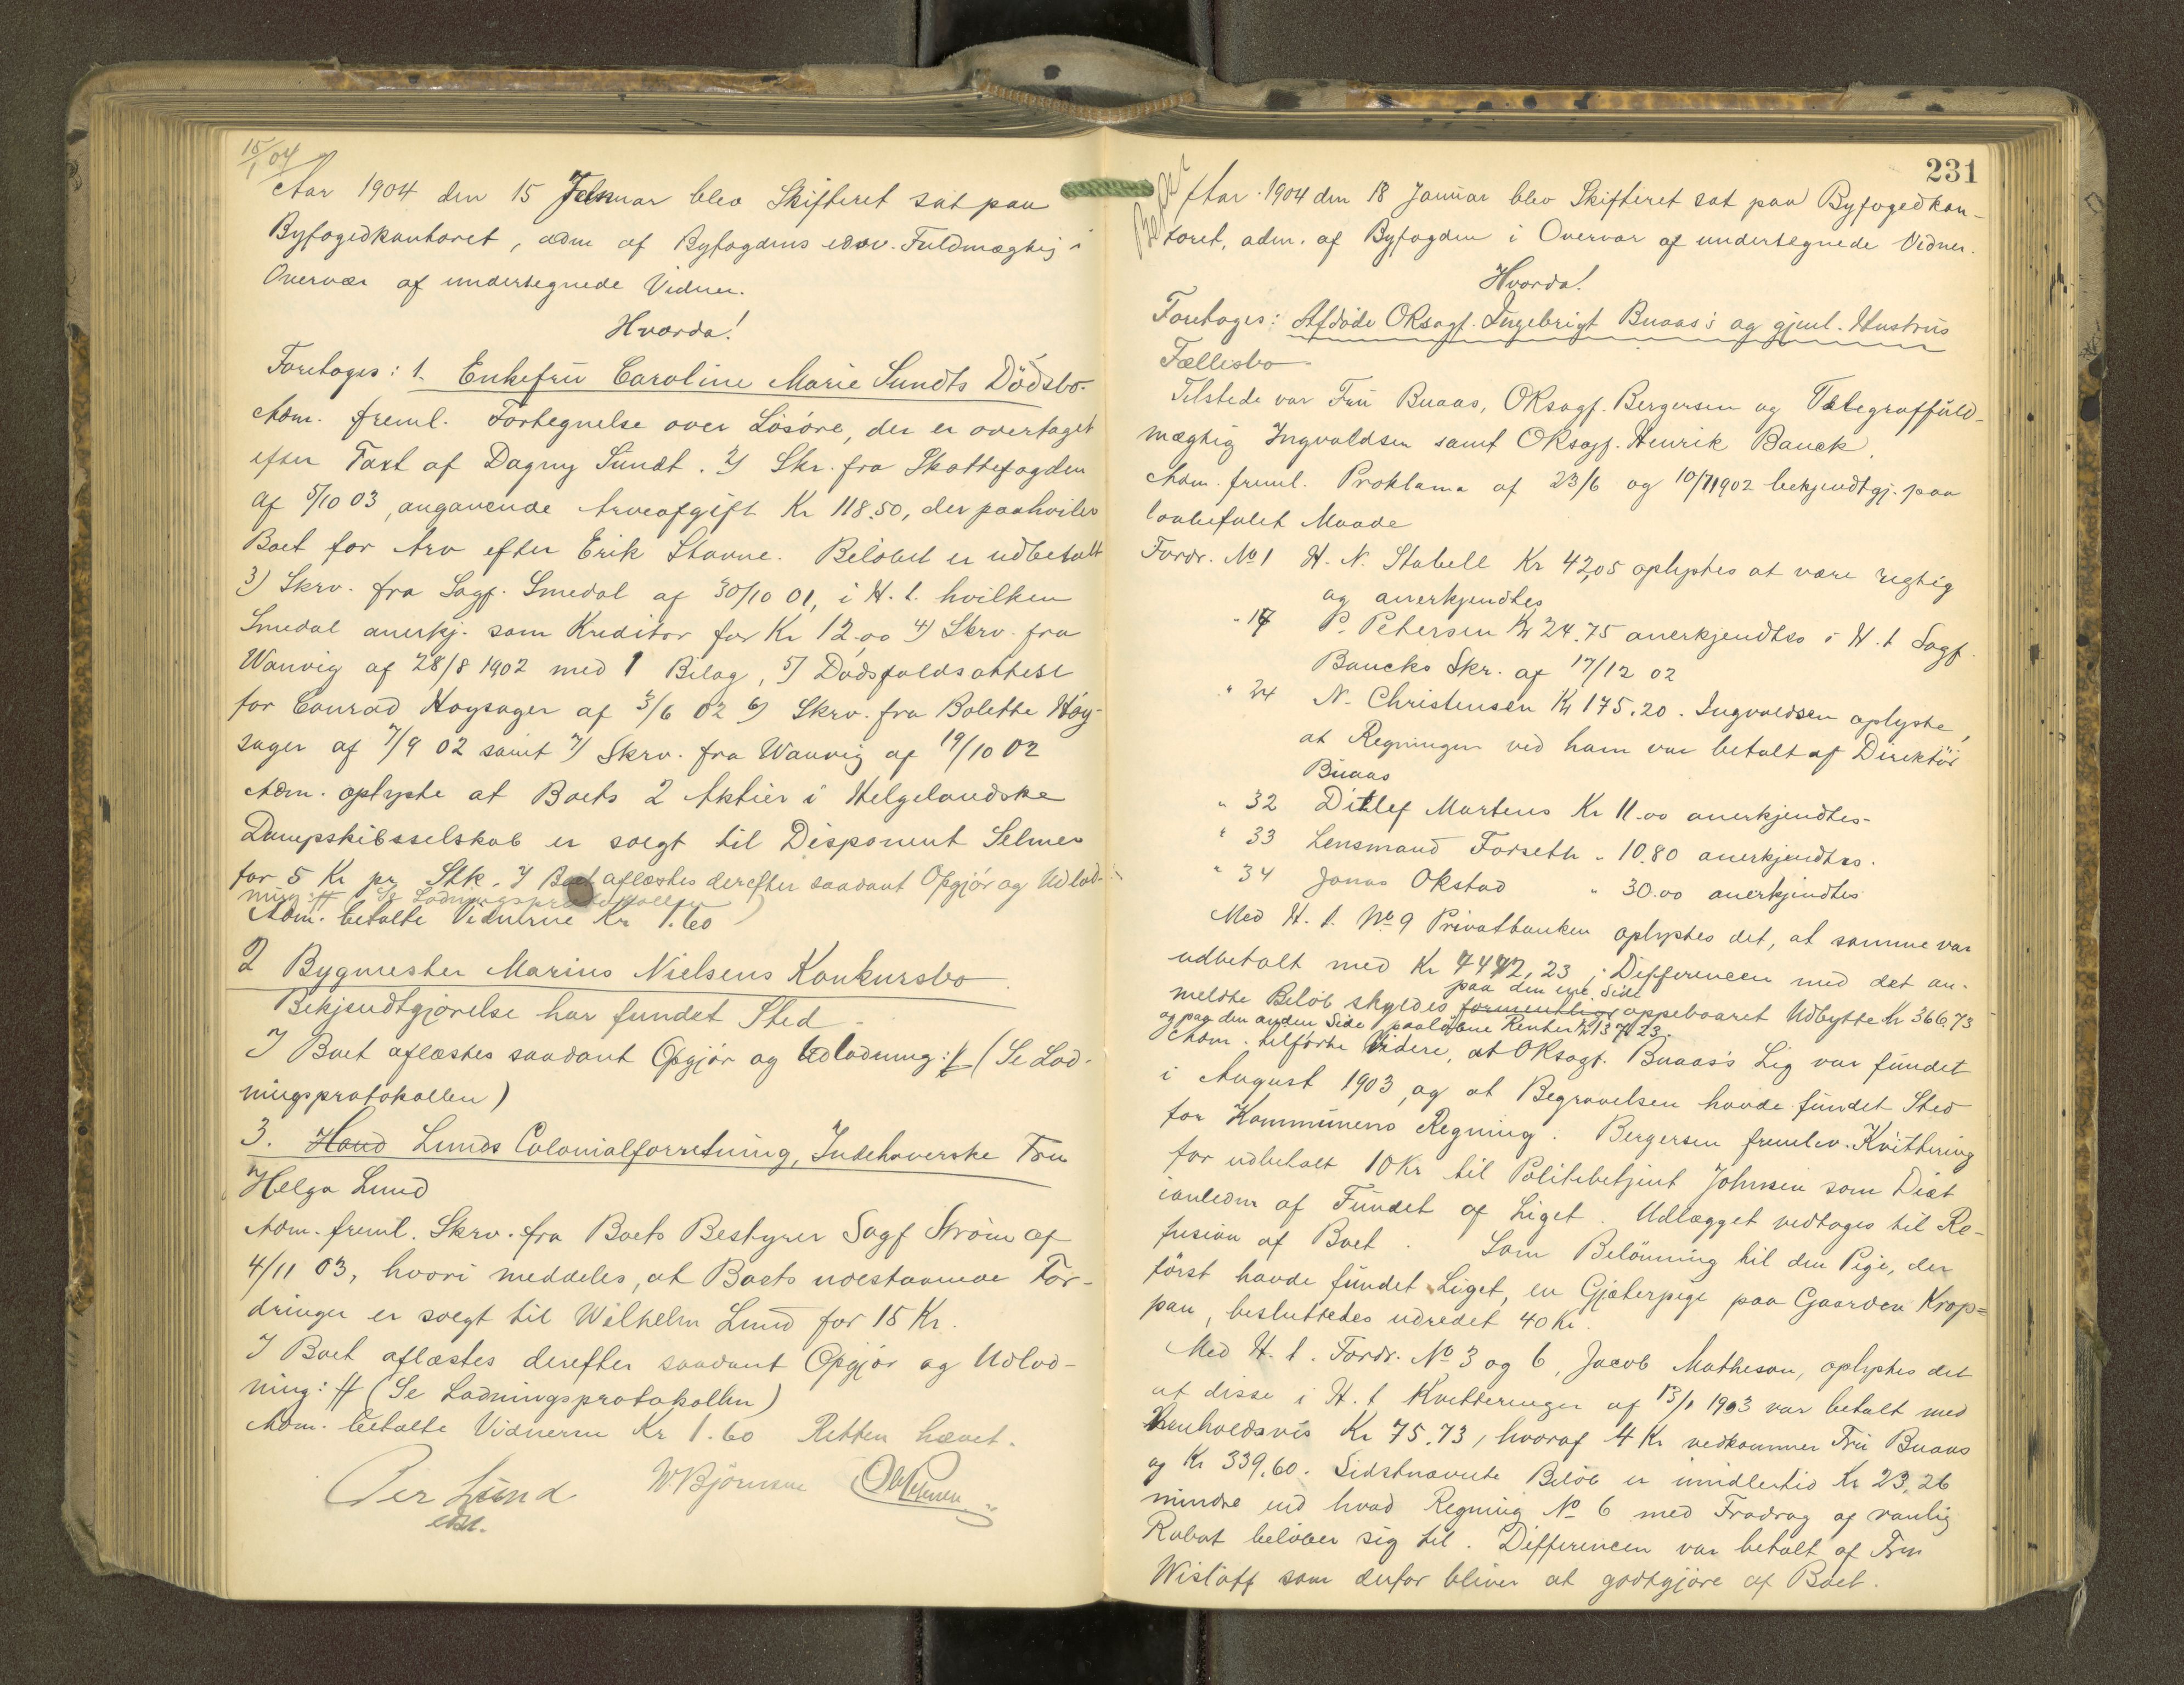 15/1 04
Aar 1904 den 15 Januar blev Skifteret sat paa
Byfogedkontoret, adm af Byfogdens edsv. Fuldmægtig i
Overvær af undertegnede Vidner.
Hvorda!
Foretoges: 1. Enkefru Caroline Marie Sundts Dödsbo.
Adm. freml. Fortegnelse over Lösöre, der er overtaget
efter Taxt af Dagny Sundt. 2) Skr. fra Skattefogden
af 5/10 03, angaaende Arveafgift Kr 118.50, der paahviler
Boet for Arv efter Erik Stavne. Belöbet er udbetalt
3) Skrv. fra Sagf. Smedal af 30/10 01, i H. t. hvilken
Smedal anerkj. som Kreditor for Kr 12.00 4) Skrv. fra
Wanvig af 28/8 1902 med 1 Bilag, 5) Dödsfaldsattest
for Conrad Høysager af 3/6 02 6) Skrv. fra Bolette Höy-
sager af 7/9 02 samt 7) Skrv. fra Wanvig af 19/10 02
Adm. oplyste at Boets 2 Aktier i Helgelandske
Dampskibsselskab er solgt til Disponent Selmer
for 5 Kr pr Stk. I Boet aflæstes derefter saadant Opgjör og Udlod-
ning: # (Se Lodningsprotokollen)
Adm. betalte Vidnerne Kr 1.60
2 Bygmester Marius Nielsens Konkursbo.
Bekjendtgjörelse har fundet Sted.
I Boet aflæstes saadant Opgjör og Udlodning: # (Se Lod-
ningsprotokollen)
3. Hand Lunds Colonialforretning, Indehaverske Fru
Helga Lund
Adm. freml. Skrv. fra Boets Bestyrer Sagf Ström af
4/11 03, hvori meddeles, at Boets udestaaende For-
dringer er solgt til Wilhelm Lund for 15 Kr.
I Boet aflæstes derefter saadant Opgjör og Udlod-
ning: # (Se Lodningsprotokollen)
Adm. betalte Vidnerne Kr 1.60 Retten hævet.
Per Lund W. Björnson
edsv.
231
Aar 1904 den 18 Januar blev Skifteret sat paa Byfogedkon-
toret, adm. af Byfogden i Overvær af undertegnede Vidner.
Hvorda!
Foretoges: Afdöde OKsagf. Ingebrigt Buaas's og gjenl. Hustrus
Fællesbo
Tilstede var Fru Buaas, OKsagf. Bergersen og Telegraffuld-
mægtig Ingvaldsen samt OKsagf. Henrik Bauck.
Adm. freml. Proklama af 23/6 og 10/7 1902 bekjendtgj. paa
lovbefalet Maade
Fordr. No 1 H. N. Stabell Kr 42,05 oplystes at være rigtig
og anerkjendtes
" 17 P. Petersen Kr 24.75 anerkjendtes i H. t Sagf.
Baucks Skr. af 17/12 02
" 24 N. Christensen Kr 175.20. Ingvaldsen oplyste,
at Regningen ved ham var betalt af Direktör
Buaas
" 32 Ditlef Martens Kr 11.00 anerkjendtes.
" 33 Lensmand Forseth " 10.80 anerkjendtes.
" 34 Jonas Okstad " 30.00 anerkjendtes
Med H. t. No 9 Privatbanken oplystes det, at samme var
udbetalt med Kr 7472,23; Differencen med det an-
paa den ene Side
meldte Belöb skyldes formentlig oppebaaret Udbytte Kr 366.73
og paa den anden Side paalöbne Renter Kr 137.23.
Adm. tilförte videre, at OKsagf. Buaas's Lig var fundet
i August 1903, og at Begravelsen havde fundet Sted
for Kommunens Regning. Bergersen fremlev. Kvittering
for udbetalt 10 Kr til Politibetjent Johnsen som Diæt
ianledn af Fundet af Liget. Udlægget vedtoges til Re-
fusion af Boet. Som Belönning til den Pige, der
först havde fundet Liget, en Gjæterpige paa Gaarden Krop=
pan, besluttedes udredet 40 Kr.
Med H. t. Fordr. No 3 og 6, Jacob Matheson, oplystes det
at disse i H. t Kvitteringer af 13/1 1903 var betalt med
henholdsvis Kr 75.73, hvoraf 4 Kr vedkommer Fru Buaas
og Kr 339.60. Sidstnævnte Belöb er imidlertid Kr 23,26
mindre end hvad Regning No 6 med Fradrag af vanlig
Rabat belöber sig til. Differencen var betalt af Fru
Wisløff som derfor bliver at godtgjöre af Boet.